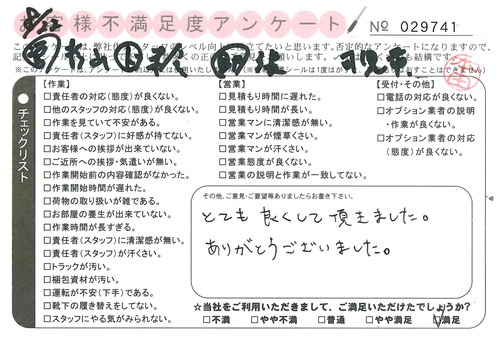 お客様不満足度アンケート
No 029741
チェックリスト
【作業】
□責任者の対応(態度)が良くない。
□他のスタッフの対応(態度)が良くない。
□作業を見ていて不安がある。
□責任者(スタッフ)に好感が持てない。
□お客様への挨拶が出来ていない。
□ご近所への挨拶・気遣いが無い。
□作業開始前の内容確認がなかった。
□作業開始時間が遅れた。
□荷物の取り扱いが雑である。
□お部屋の養生が出来ていない。
□作業時間が長すぎる。
□責任者(スタッフ)に清潔感が無い。
□責任者(スタッフ)が汗くさい。
□トラックが汚い。
□梱包資材が汚い。
□運転が不安(下手)である。
□靴下の履き替えをしてない。
□スタッフにやる気がみられない。
【営業】
□見積もり時間に遅れた。
□見積もり時間が長い。
□営業マンに清潔感が無い。
□営業マンが煙草くさい。
□営業マンが汗くさい。
□営業態度が良くない。
□営業の説明と作業が一致してない。
【受付・その他】
□電話の対応が良くない。
□オプション業者の説明
・作業が良くない。
□オプション業者の対応
(態度)が良くない。
その他、ご意見・ご要望等ありましたらお書き下さい。
とても良くして頂きました。
ありがとうございました。
☆当社をご利用いただきまして、ご満足いただけたでしょうか?
□不満 □やや不満 □普通 □やや満足 □満足